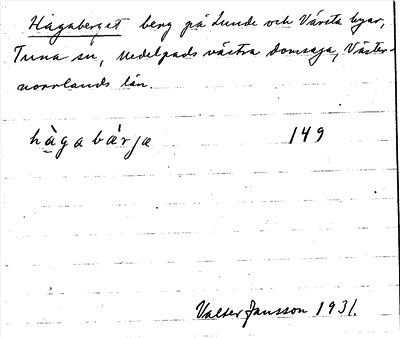 Hagaberget berg på Lunde och Vårsta byar,
Tuna sn, Medelpads västra domsaga, Väster-
norrlands län.
hàgabárja 149
Valter Jansson 1931.